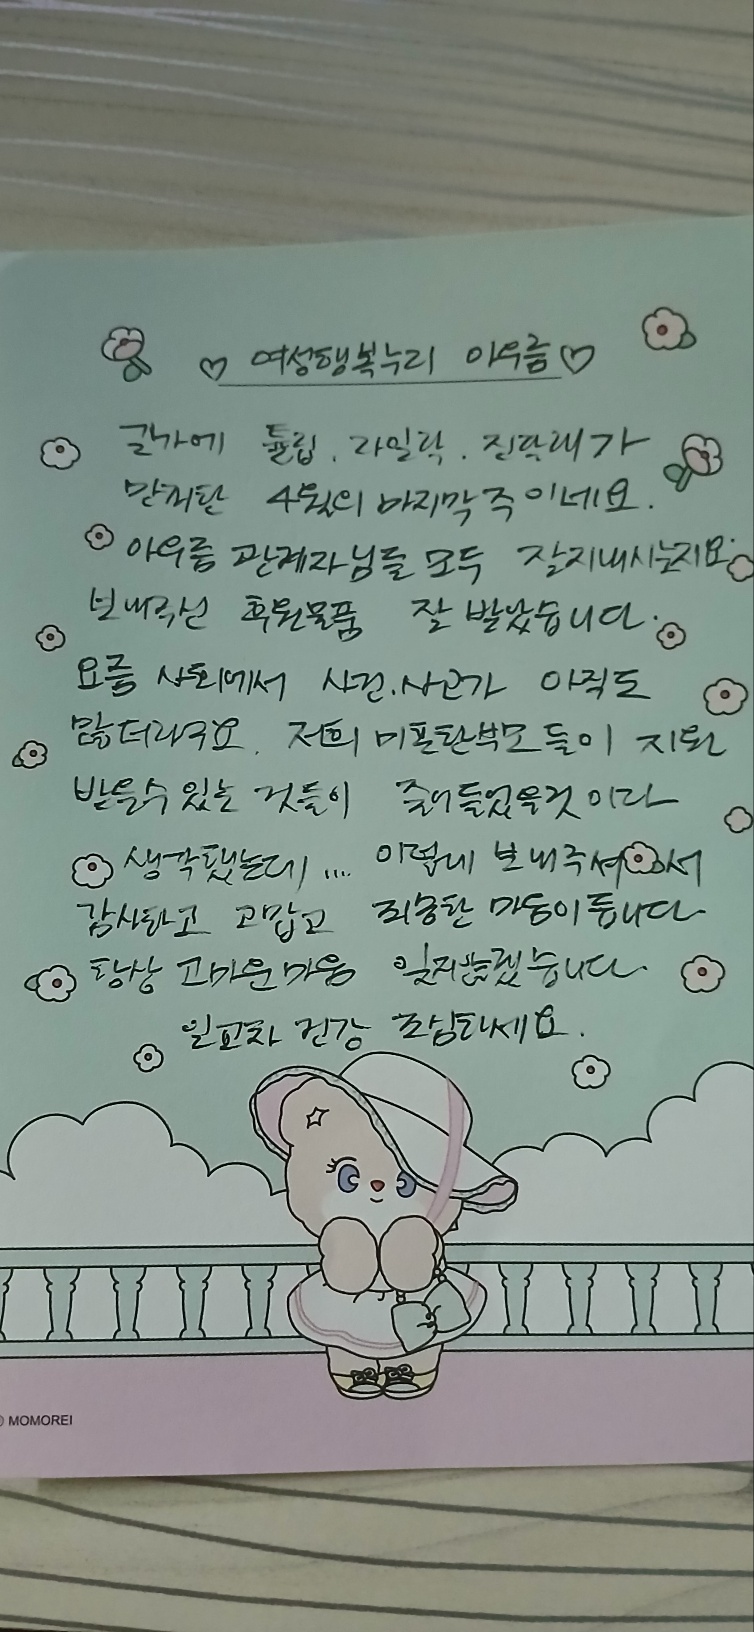 ♡ 여성행복누리 아우름♡
길가에 튤립. 라일락. 진달래가
만개한 4월의 마지막 주 이네요.
아우름 관계자님들 모두 잘지내시는지요.
보내주신 후원물품 잘 받았습니다.
요즘 사회에서 사건.사고가 아직도
많더라구요. 저희 미혼한부모들이 지원
받을수 있는 것들이 줄어들었을것 이라
생각했는데... 이렇게 보내주셔서
감사하고 고맙고 죄송한 마음이 듭니다
항상 고마운마음 잊지않겠습니다.
일교차 건강 조심하세요.
© MOMOREI